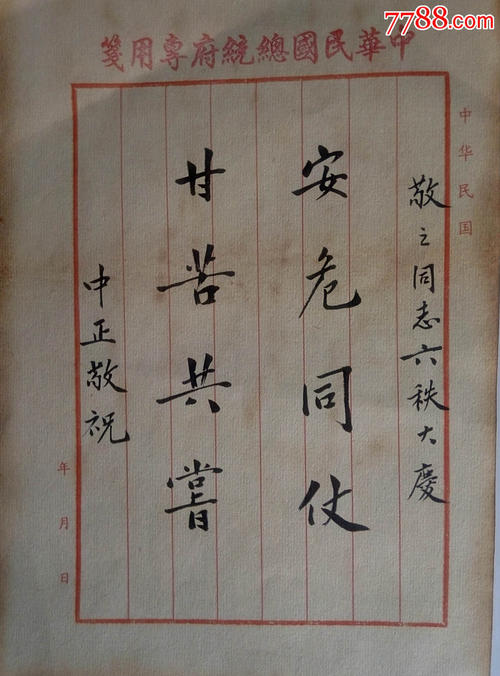 7788.com
中華民國總統府專用箋
中华民国
敬之同志六秩大慶
安危同仗
甘苦共嘗
中正敬祝
年月日